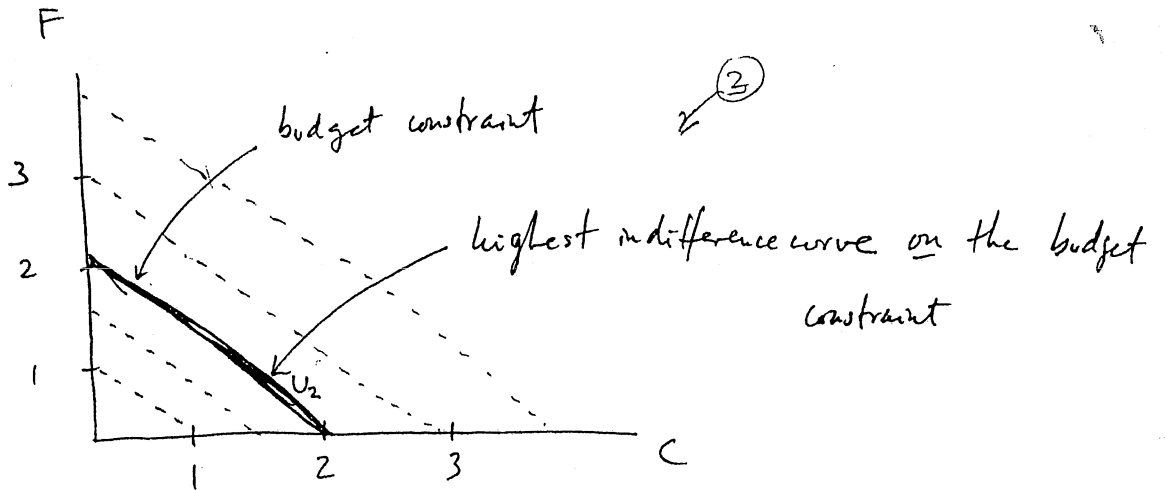 F
2
budget constraint
3
highest indifference curve on the budget
constraint
2
1
U₂
1 2 3 C